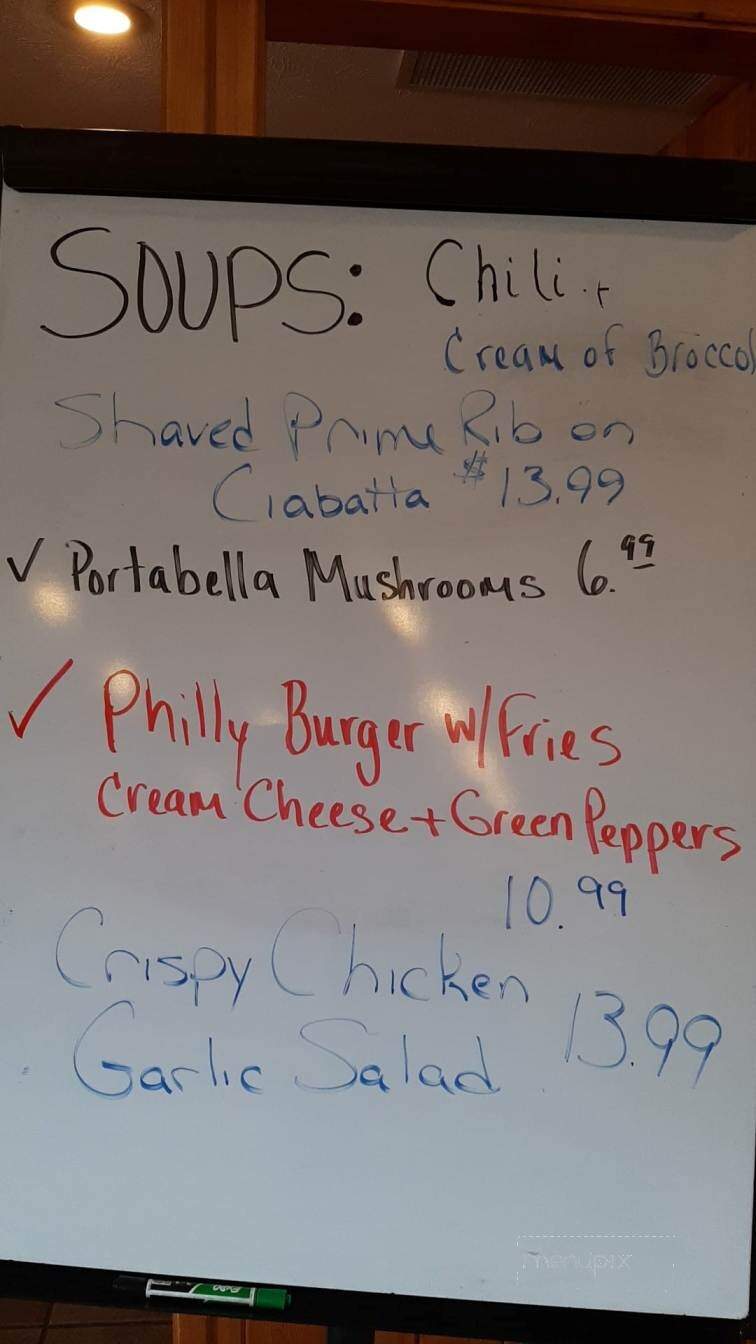 SOUPS: Chili +
Cream of Broccol
Shaved Prime Rib on
Ciabatta $13.99
✓ Portabella Mushrooms 6.99
✓ Philly Burger w/Fries
Cream Cheese + Green Peppers
10.99
Crispy Chicken
Garlic Salad 13.99
menupix